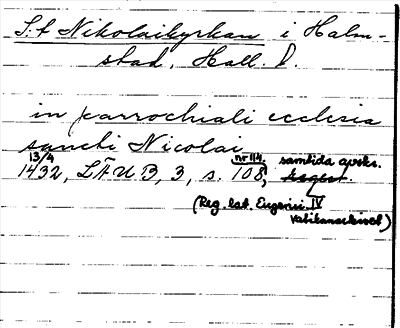 S:t Nikolaikyrkan i Halm-
stad, Hall. l.
in parrochiali ecclesia
sancti Nicolai
13/4 nr 114. samtida avskr.
1432, LÄUB, 3, s. 108,
(Reg. lat. Eugenii IV
Vatikanarkivet)